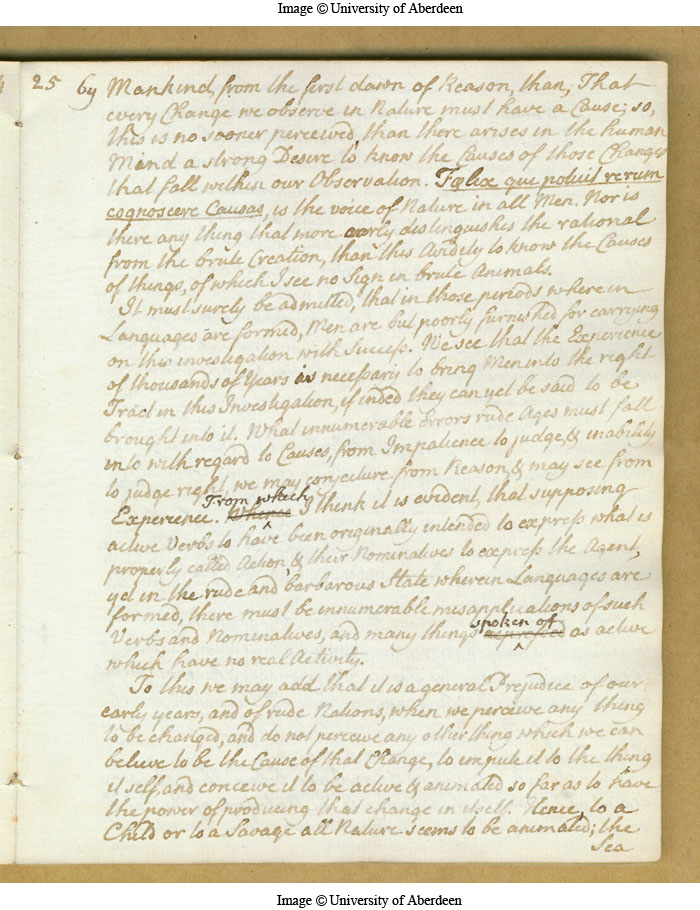 Image © University of Aberdeen
25 by Mankind, from the first dawn of Reason, than, That
every Change we observe in Nature must have a Cause; so,
this is no sooner perceived, than there arises in the human
Mind a strong Desire to know the Causes of those Changes
that fall within our Observation. Fœlix qui potuit rerum
cognoscere Causas, is the voice of Nature in all Men. Nor is
there any thing that more early distinguishes the rational
from the brute Creation, than this Avidity to know the Causes
of things, of which I see no Sign in brute Animals.
It must surely be admitted, that in those periods wherein
Languages are formed, Men are but poorly furnished for carrying
on this investigation with Success. We see that the Experience
of thousands of Years is necessary to bring Men into the right
Tract in this Investigation, if inded they can yet be said to be
brought into it. What innumerable Errors rude Ages must fall
into with regard to Causes, from Impatience to judge, & inability
to judge right, we may conjecture from Reason, & may see from
From which
Experience. Whence I think it is evident, that supposing
active Verbs to have been originally intended to express what is
properly called Action, & their Nominatives to express the Agent,
yet in the rude and barbarous State wherein Languages are
formed, there must be innumerable misapplications of such
spoken of
Verbs and Nominatives, and many things expressed as active
which have no real Activity.
To this we may add That it is a general Prejudice of our
early years, and of rude Nations, when we perceive any thing
to be changed, and do not perceive any other thing which we can
believe to be the Cause of that Change, to impute it to the thing
it self, and conceive it to be active & animated so far as to have
the power of producing that change in itself. Hence, to a
Child or to a Savage all Nature seems to be animated; the
Sea
Image © University of Aberdeen